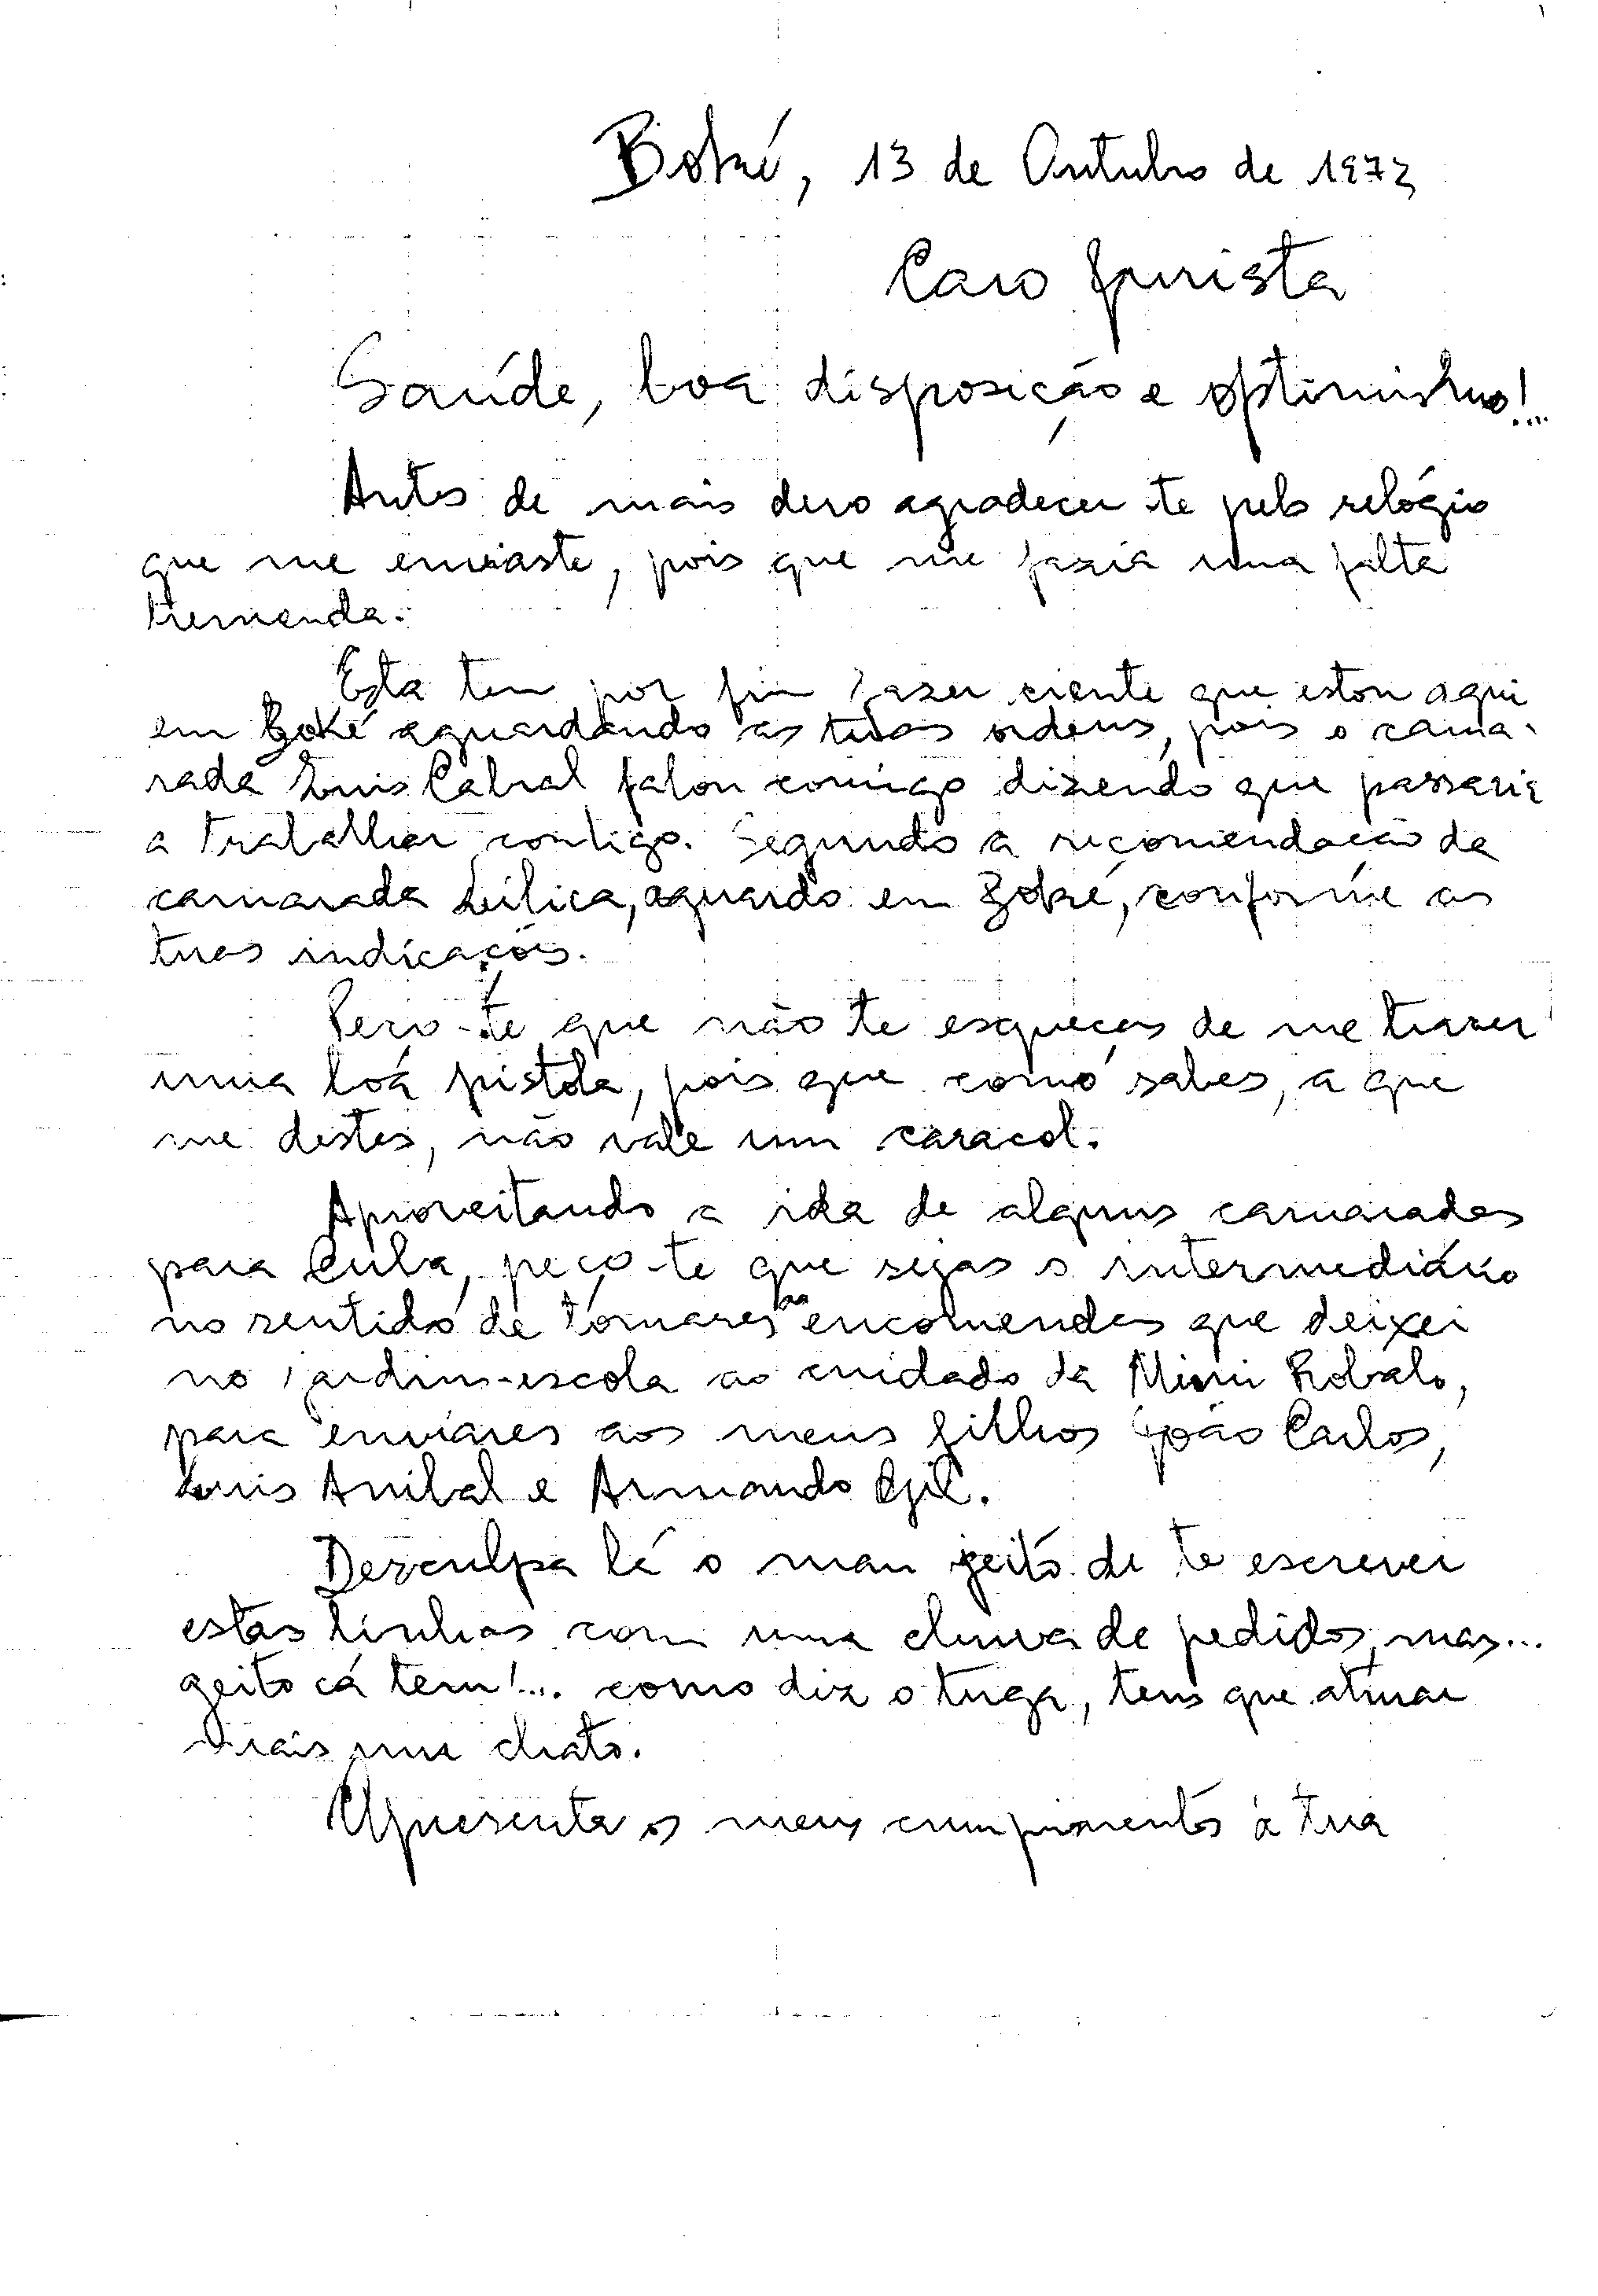 Boké, 13 de Outubro de 1973
Caro Jurista
Saúde, boa disposição e optimismo!...
Antes de mais devo agradecer-te pelo relógio
que me enviaste, pois que me fazia uma falta
tremenda.
Esta tem por fim fazer ciente que estou aqui
em Boké aguardando as tuas ordens, pois o cama-
rada Luis Cabral falou comigo dizendo que passaria
a trabalhar contigo. Segundo a recomendação da
camarada Lilica, aguardo em Boké, conforme as
tuas indicações.
Peço-te que não te esqueças de me trazer
uma boa pistola, pois que como sabes, a que
me destes, não vale um caracol.
Aproveitando a ida de alguns camaradas
para Cuba, peço-te que sejas o intermediário
no sentido de tomares as encomendas que deixei
no jardim-escola ao cuidado da Mimi Robalo,
para enviares aos meus filhos João Carlos,
Luis Anibal e Armando Gil.
Desculpa lá o mau geito de te escrever
estas linhas com uma chuva de pedidos, mas...
geito cá tem!... como diz o tuga, tens que aturar
mais um chato.
Apresenta os meus cumprimentos à tua